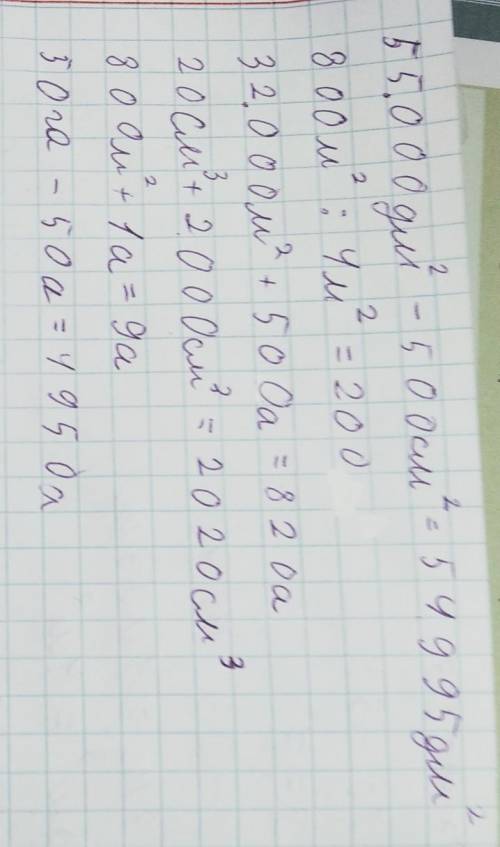 55.000дм² - 500см² = 54995дм²
800м² : 4м² = 200
32.000м² + 500а = 820а
20см³ + 2000см³ = 2020см³
800м² + 1а = 9а
50га - 50а = 4950а